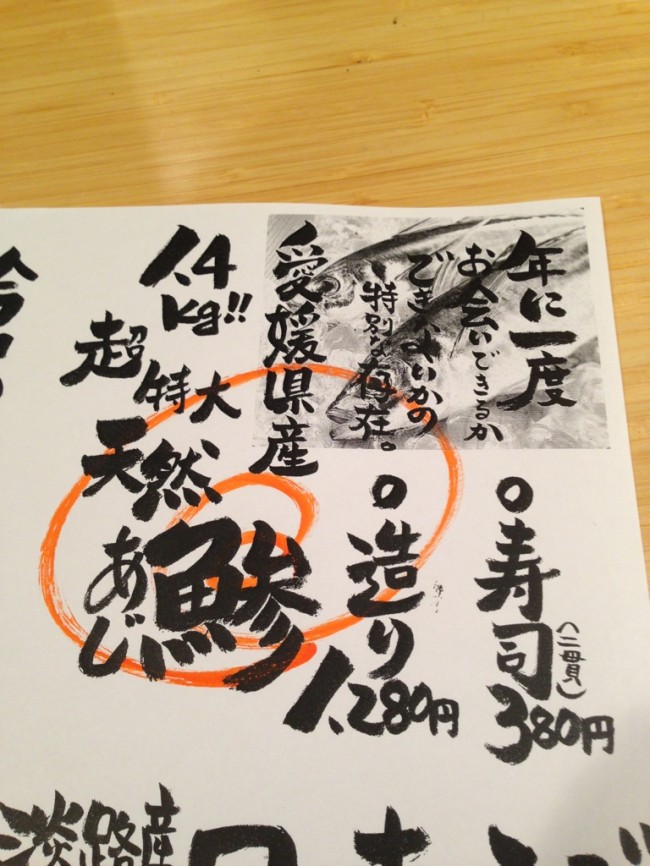 年に一度
お会いできるか
できないかの
特別な存在。
愛媛県産
1.4kg!!
超特大
天然
あじ
鯵
○寿司(二貫)
380円
○造り
1,280円
淡路産